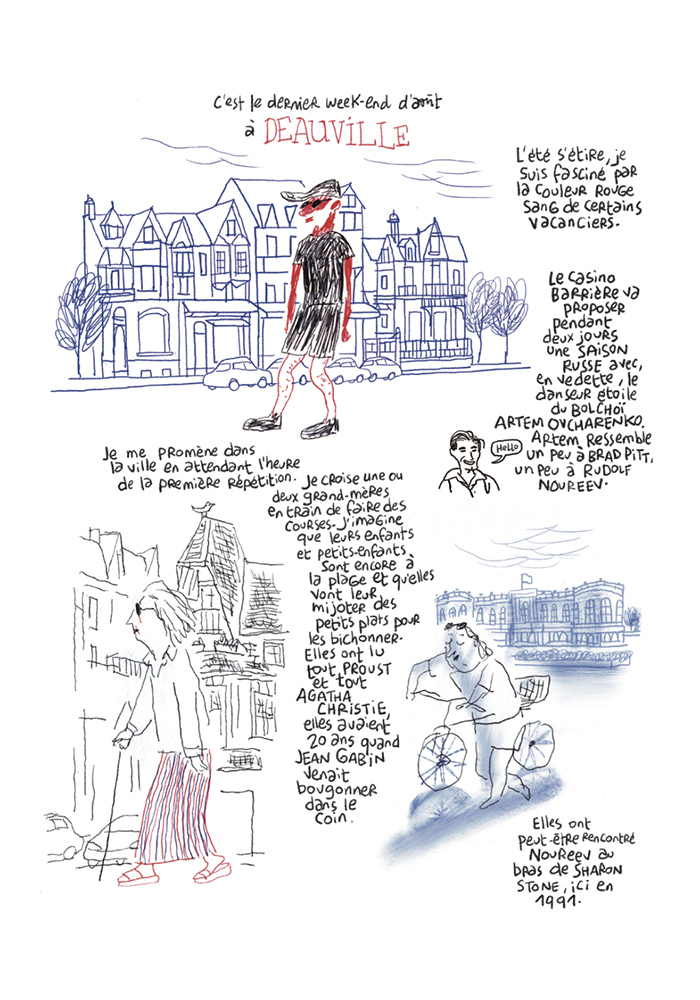 C'est le dernier week-end d'août
à DEAUVILLE
L'été s'étire, je
suis fasciné par
la couleur rouge
sang de certains
vacanciers.
Le Casino
Barrière va
proposer
pendant
deux jours
une SAISON
RUSSE avec,
en vedette, le
danseur étoile
du BOLCHOÏ
ARTEM OVCHARENKO.
Artem ressemble
un peu à BRAD PITT,
un peu à RUDOLF
NOUREEV.
Hello
Je me promène dans
la ville en attendant l'heure
de la première répétition.
Je croise une ou
deux grand-mères
en train de faire des
courses. J'imagine
que leurs enfants
et petits-enfants
sont encore à
la plage et qu'elles
vont leur
mijoter des
petits plats pour
les bichonner.
Elles ont lu
tout PROUST
et tout
AGATHA
CHRISTIE,
elles avaient
20 ans quand
JEAN GABIN
venait
bougonner
dans le
coin.
Elles ont
peut-être rencontré
NOUREEV au
bras de SHARON
STONE, ici en
1991.